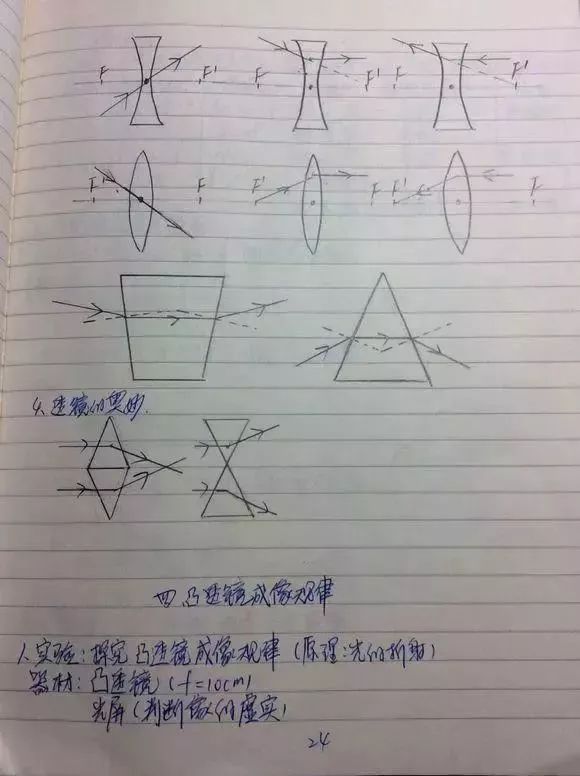 F F' F F' F F'
F' F F' F F' F
4.透镜的奥妙.
四.凸透镜成像规律
1.实验:探究凸透镜成像规律(原理:光的折射)
器材:凸透镜(f=10cm)
光屏(判断像的虚实)
24